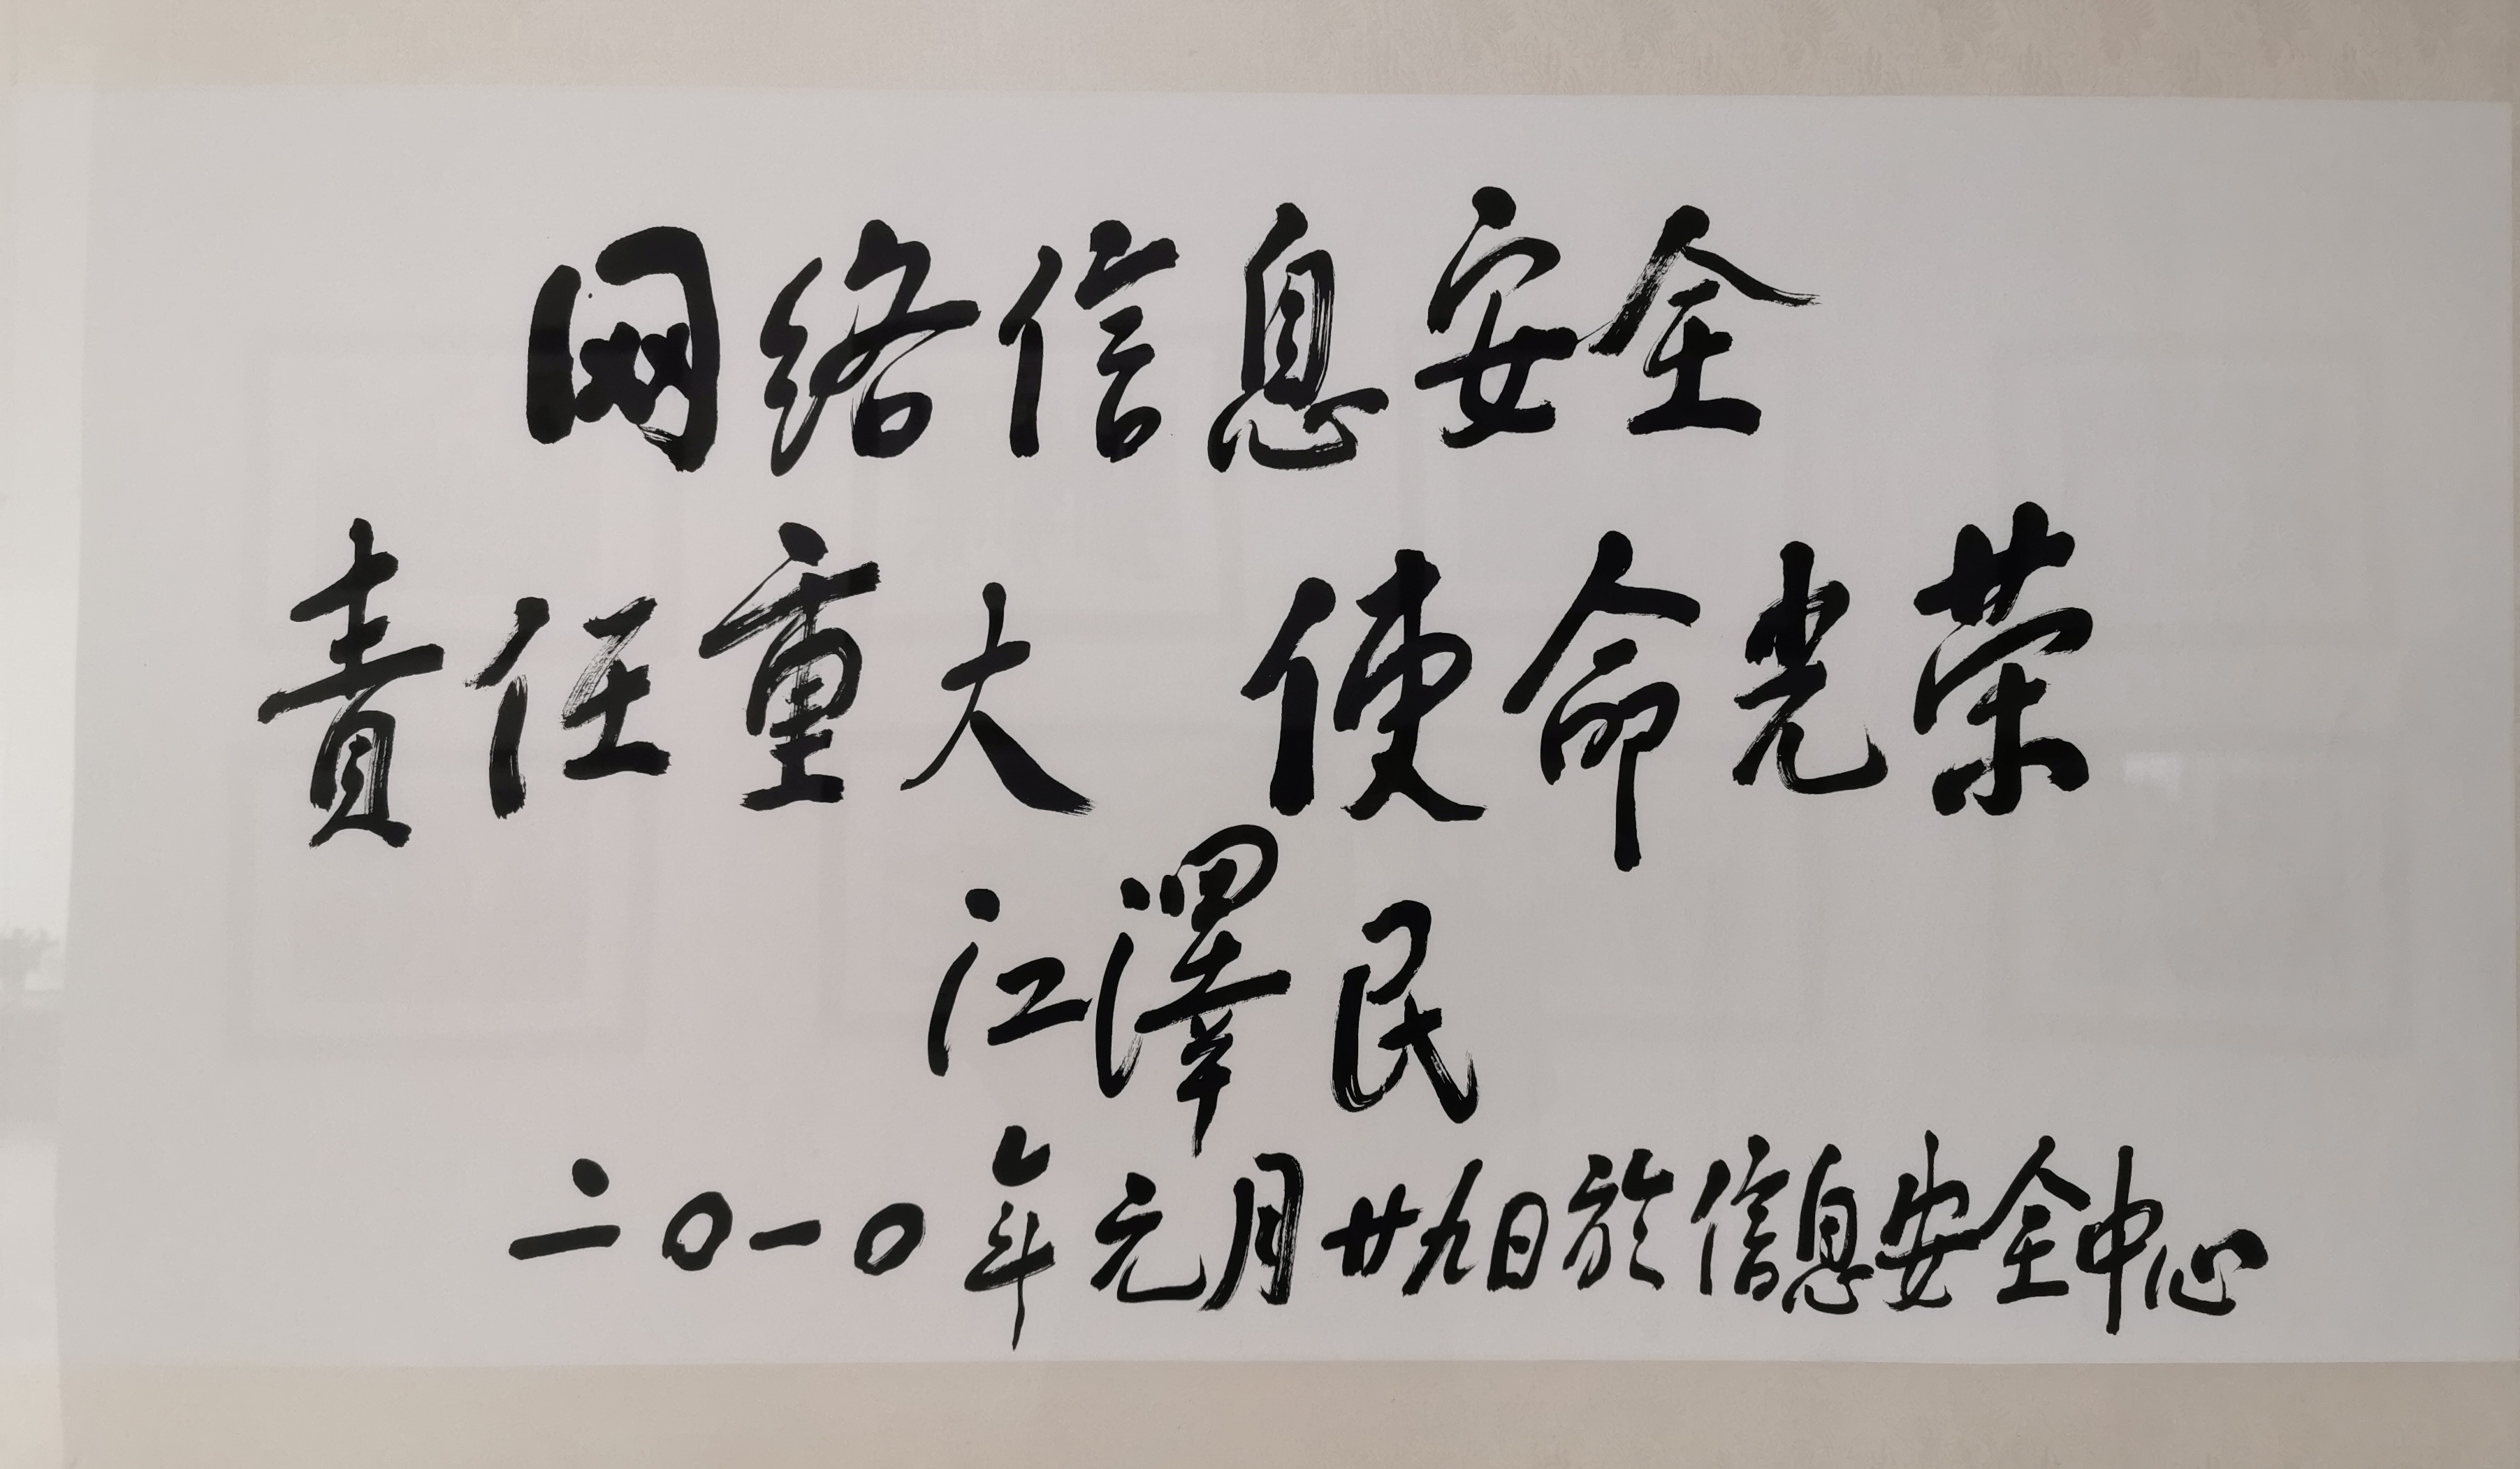 网络信息安全
責任重大 使命光荣
江澤民
二〇一〇年元月廿九日於信息安全中心